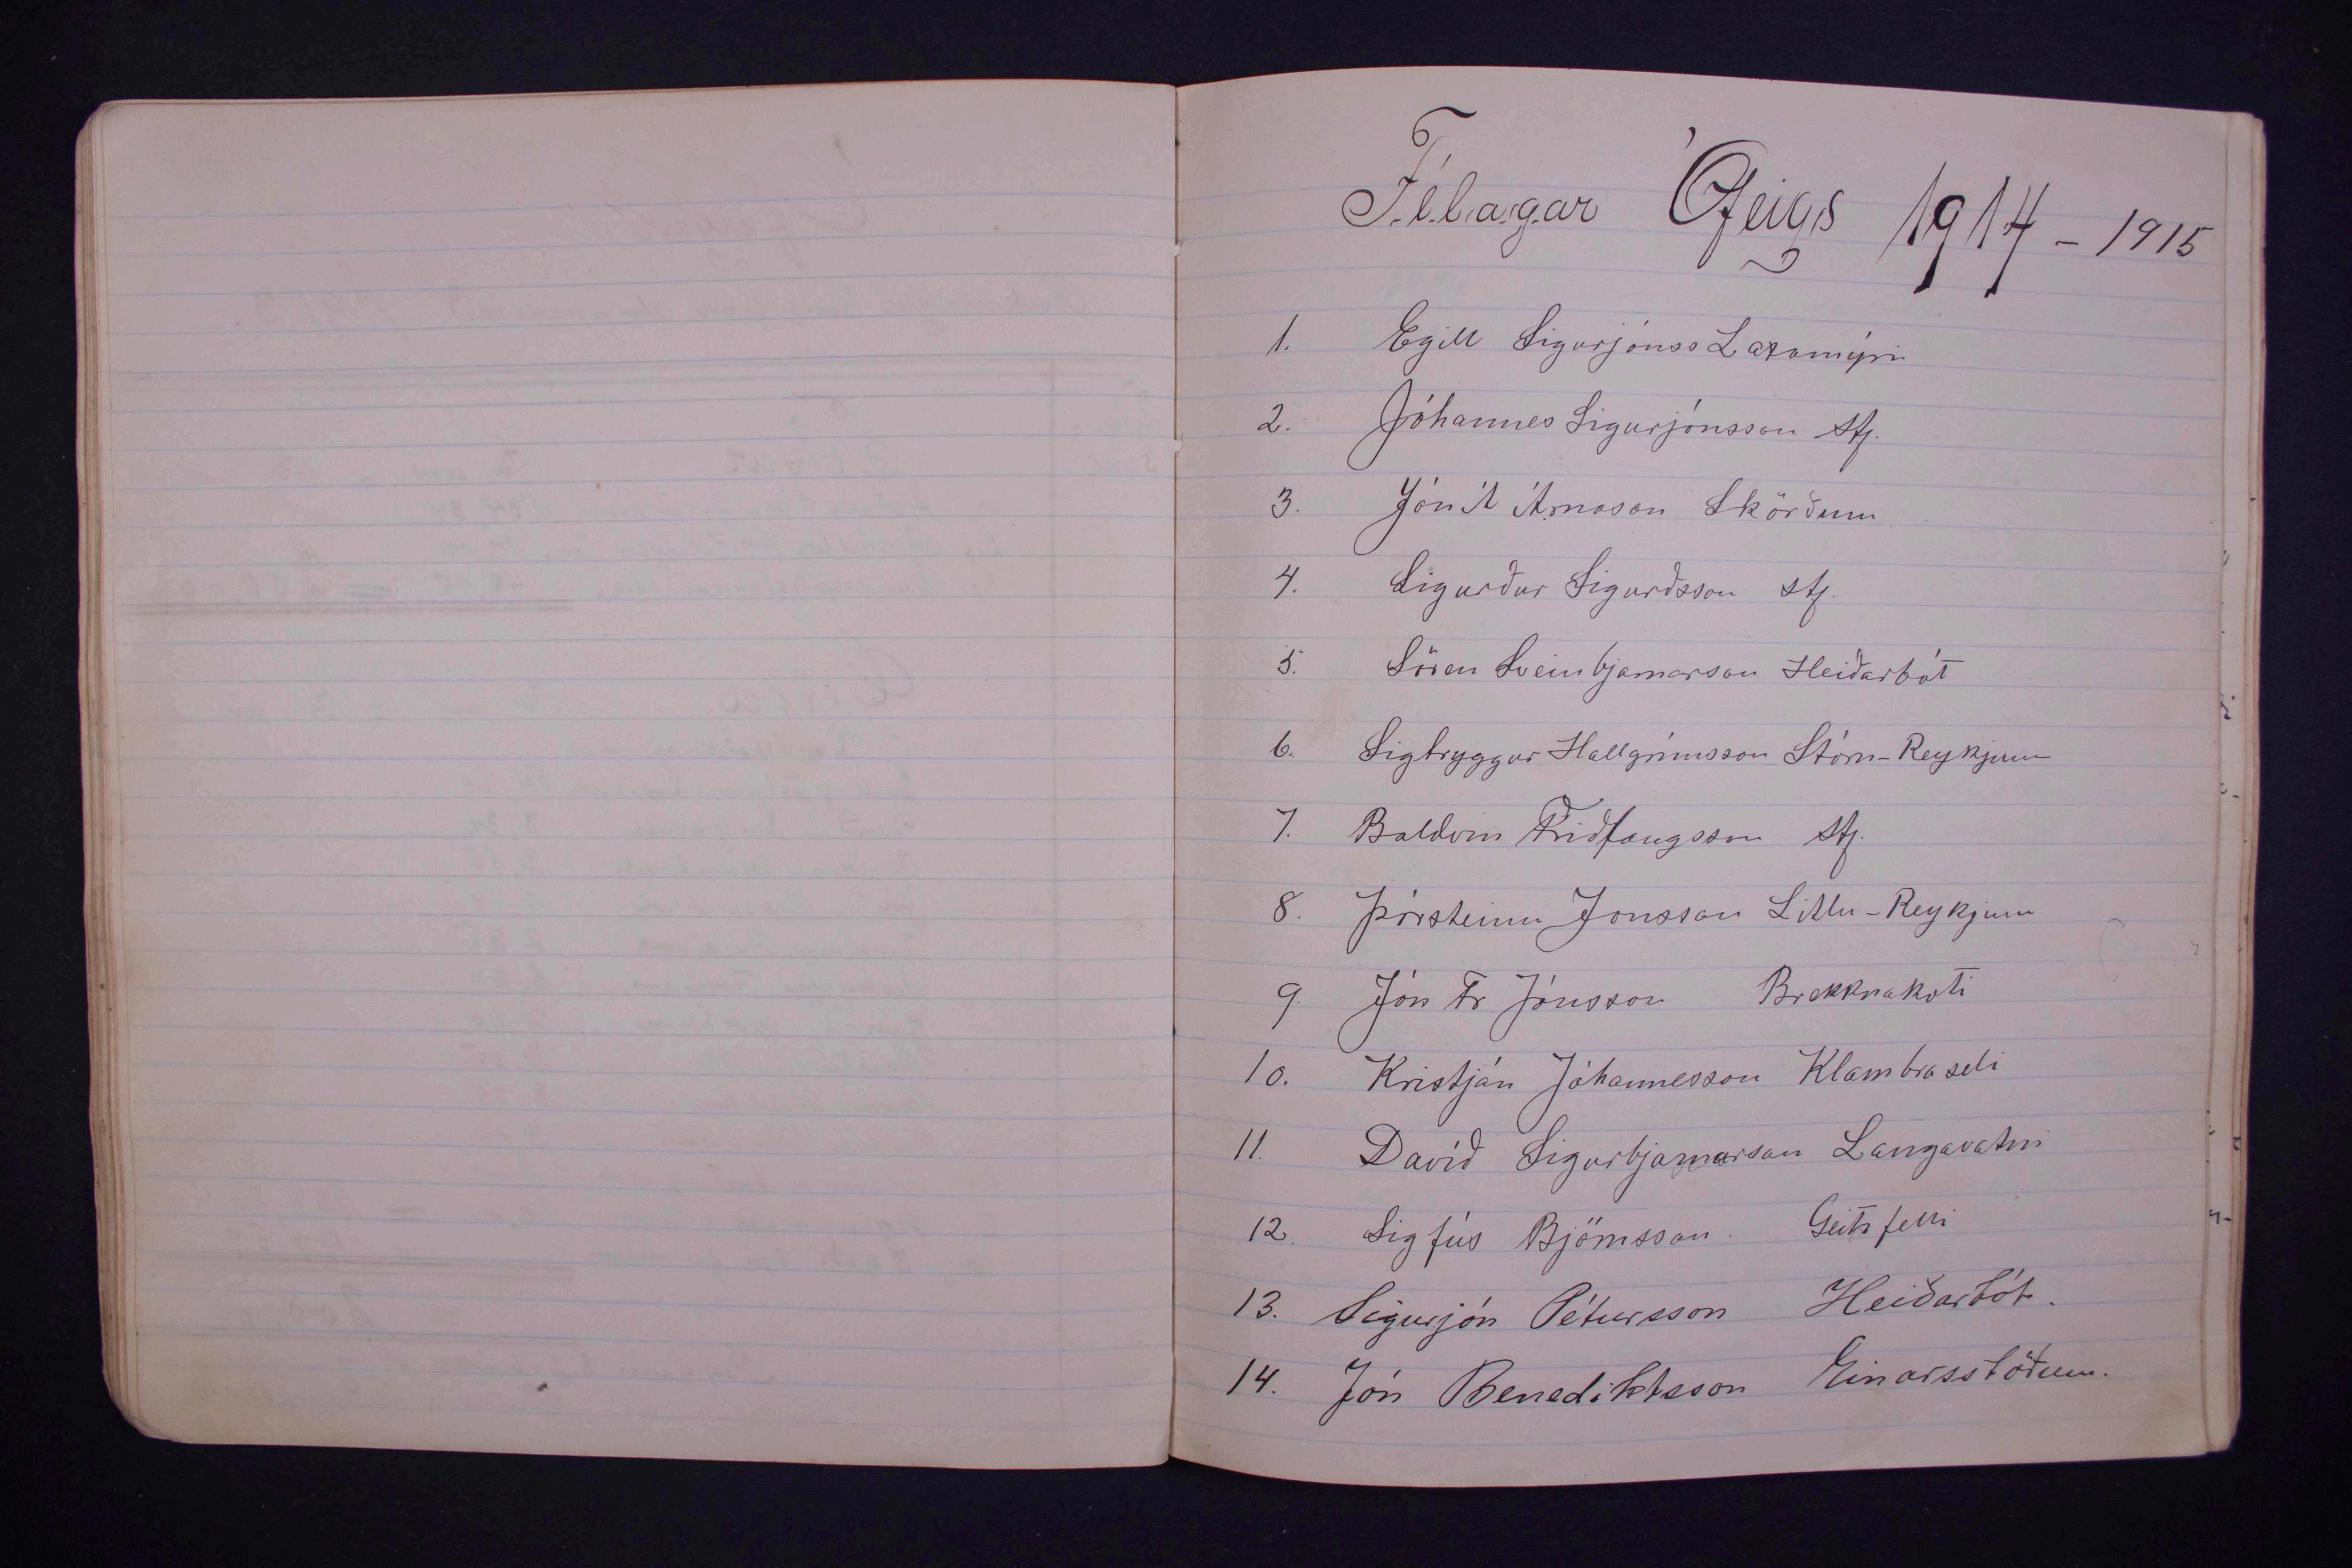 Félagar Ófeigs 1914 - 1915
1. Egill Sigurjónss Laxamýri
2. Jóhannes Sigurjónsson stj.
3. Jón Á Árnason Skörðum
4. Sigurður Sigurðsson stj.
5. Sören Sveinbjarnarson Heiðarbót
6. Sigtryggur Hallgrímsson Stóru-Reykjum
7. Baldvin Friðlaugsson stj.
8. Þórsteinn Jonsson Litlu-Reykjum
9. Jón Fr Jónsson Brekknakoti
10. Kristján Jóhannesson Klambraseli
11. Davíð Sigurbjarnarson Langavatni
12. Sigfús Björnsson. Geitafelli
13. Sigurjón Pétursson Heiðarbót.
14. Jón Benediktsson Einarsstöðum.